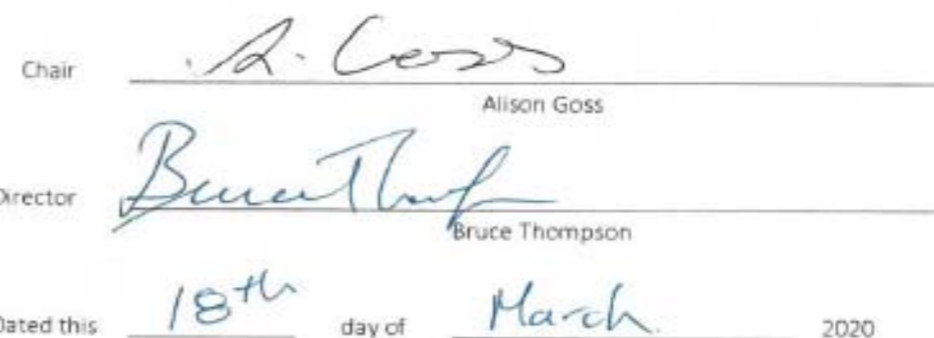 Chair A. Goss
Alison Goss
Director Bruce Thompson
Bruce Thompson
Dated this 18th day of March 2020